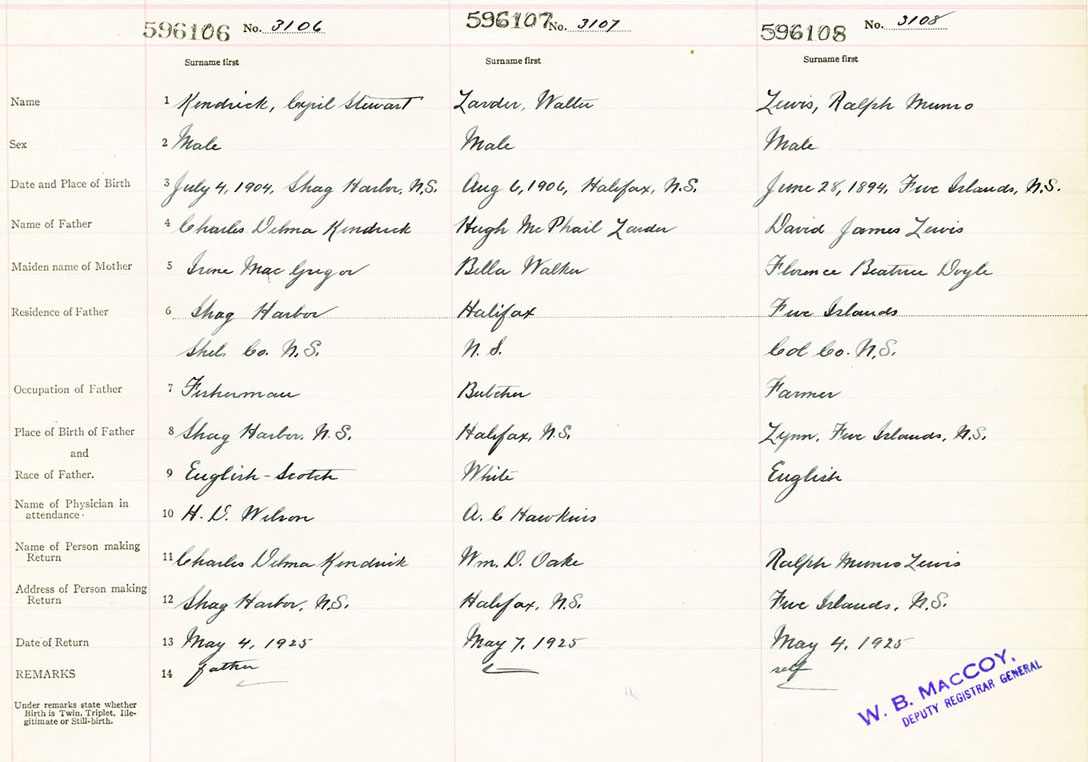 596106 No. 3106 596107 No. 3107 596108 No. 3108
Surname first Surname first Surname first
Name 1 Kendrick, Cyril Stewart Larder, Walter Lewis, Ralph Munro
Sex 2 Male Male Male
Date and Place of Birth 3 July 4, 1904, Shag Harbor, N.S. Aug 6, 1906, Halifax, N.S. June 28, 1894, Five Islands, N.S.
Name of Father 4 Charles Delma Kendrick Hugh McPhail Larder David James Lewis
Maiden name of Mother 5 Irene MacGregor Bella Walker Florence Beatrice Doyle
Residence of Father 6 Shag Harbor Halifax Five Islands
Shel. Co. N.S. N.S. Col Co. N.S.
Occupation of Father 7 Fisherman Butcher Farmer
Place of Birth of Father 8 Shag Harbor, N.S. Halifax, N.S. Lynn, Five Islands, N.S.
and
Race of Father. 9 English-Scotch White English
Name of Physician in
attendance 10 H. D. Wilson A. C Hawkins
Name of Person making
Return 11 Charles Delma Kendrick Wm. D. Oake Ralph Munro Lewis
Address of Person making
Return 12 Shag Harbor, N.S. Halifax, N.S. Five Islands, N.S.
Date of Return 13 May 4, 1925 May 7, 1925 May 4, 1925
REMARKS 14 father self
Under remarks state whether
Birth is Twin, Triplet, Ille-
gitimate or Still-birth.
W. B. MACCOY,
DEPUTY REGISTRAR GENERAL